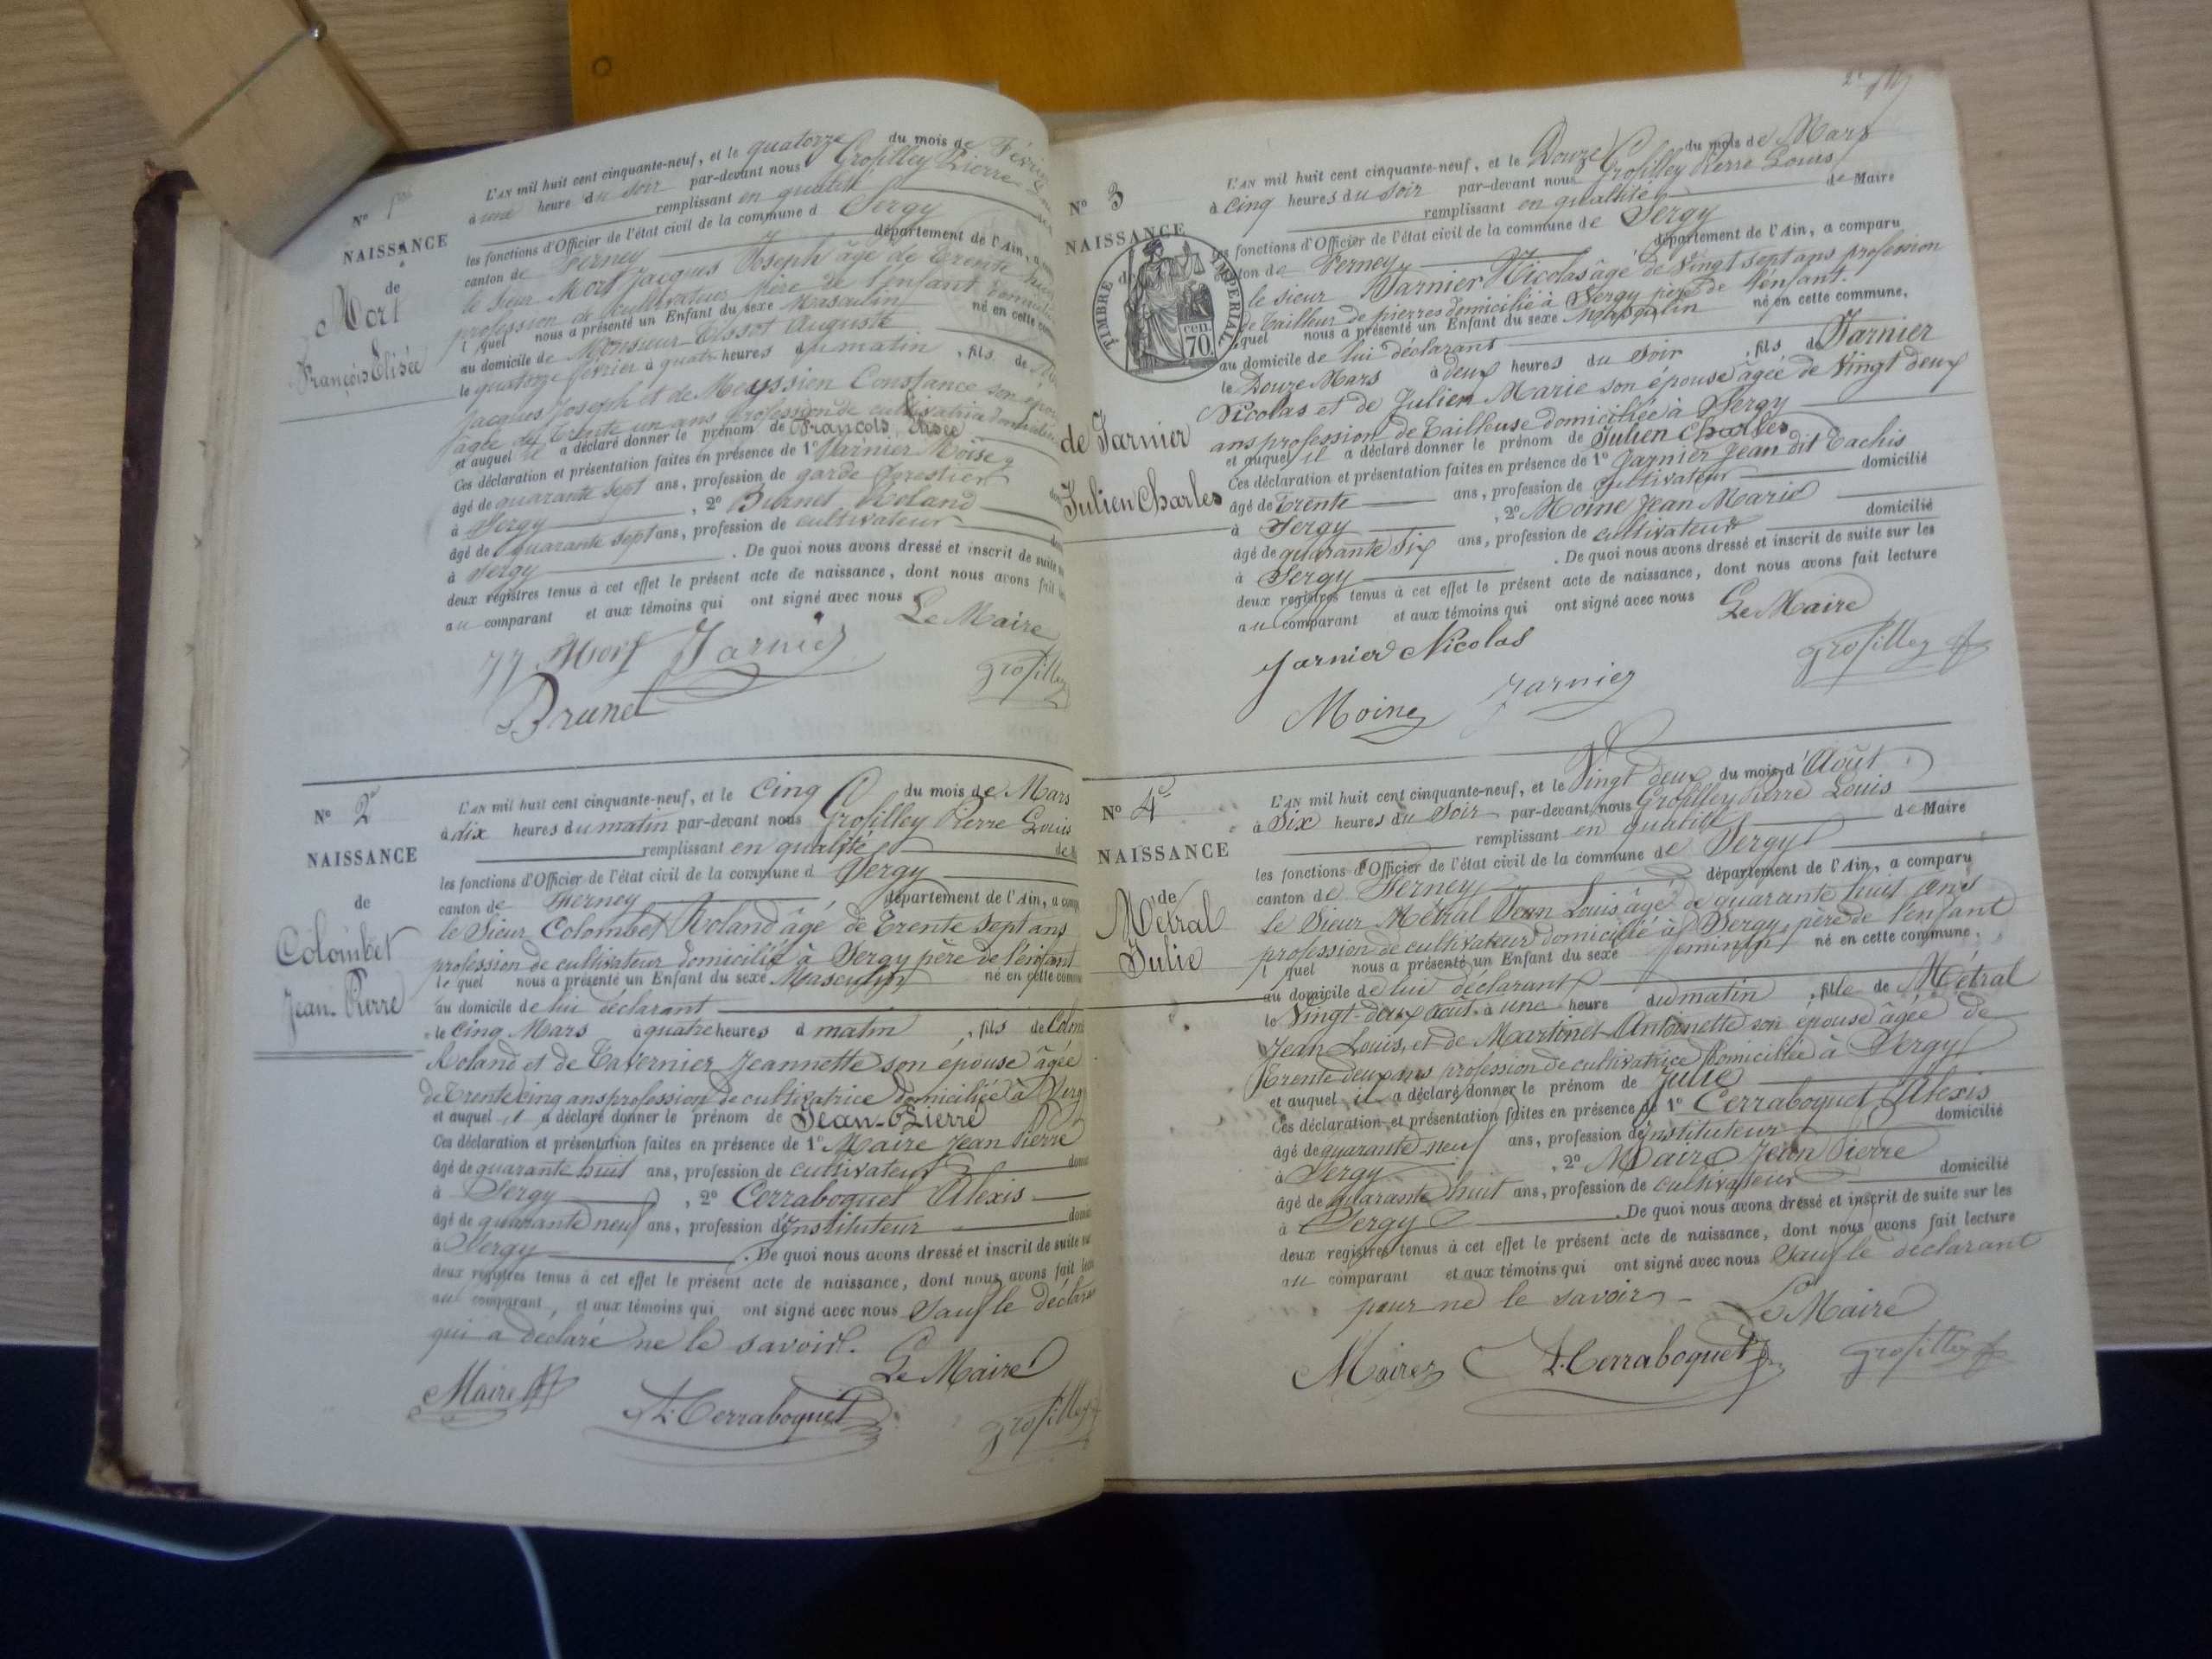 N° 1er
NAISSANCE
de
Mort
François Elisée
L'AN mil huit cent cinquante-neuf, et le quatorze du mois de Février
à une heure du soir par-devant nous Grosfilley Pierre
remplissant en qualité
les fonctions d'Officier de l'état civil de la commune d Sergy
canton de Ferney département de l'Ain, a
le sieur Mort Jacques Joseph âgé de Trente
profession de cultivateur père de l'enfant
l quel nous a présenté un Enfant du sexe Masculin né en cette
au domicile de Monsieur Tissot Auguste
le quatorze février à quatre heures du matin , fils de
Jacques Joseph et de Meyssien Constance son
âgée de Trente un ans profession de cultivatrice
et auquel il a déclaré donner le prénom de François Elisée
Ces déclaration et présentation faites en présence de 1° Jarnier Moïse
âgé de quarante sept ans, profession de garde forestier
à Sergy , 2° Brunet Roland
âgé de quarante sept ans, profession de cultivateur
à Sergy . De quoi nous avons dressé et inscrit de suite
deux registres tenus à cet effet le présent acte de naissance, dont nous avons fait
au comparant et aux témoins qui ont signé avec nous
Le Maire
JJ Mort Jarnier
Brunet Grosfilley
N° 2
NAISSANCE
de
Colombet
Jean-Pierre
L'AN mil huit cent cinquante-neuf, et le Cinq du mois de Mars
à dix heures du matin par-devant nous Grosfilley Pierre Louis
remplissant en qualité de
les fonctions d'Officier de l'état civil de la commune d Sergy
canton de Ferney département de l'Ain, a
le Sieur Colombet Roland âgé de Trente sept ans
profession de cultivateur domicilié à Sergy père de l'enfant
le quel nous a présenté un Enfant du sexe Masculin né en cette
au domicile de lui déclarant
le cinq Mars à quatre heures d matin , fils de
Roland et de Tavernier Jeannette son épouse âgée
de Trente cinq ans profession de cultivatrice domiciliée à
et auquel il a déclaré donner le prénom de Jean-Pierre
Ces déclaration et présentation faites en présence de 1° Maire Jean Pierre
âgé de quarante huit ans, profession de cultivateur
à Sergy , 2° Cerraboquet Alexis
âgé de quarante neuf ans, profession d'Instituteur
à Sergy . De quoi nous avons dressé et inscrit de suite
deux registres tenus à cet effet le présent acte de naissance, dont nous avons fait
au comparant, et aux témoins qui ont signé avec nous Sauf le
qui a déclaré ne le savoir.
Le Maire
Maire A. Cerraboquet Grosfilley
N° 3
NAISSANCE
TIMBRE IMPERIAL
70 cen
de Jarnier
Julien Charles
L'AN mil huit cent cinquante-neuf, et le Douze du mois de Mars
à Cinq heures du soir par-devant nous Grosfilley Pierre Louis
remplissant en qualité de Maire
les fonctions d'Officier de l'état civil de la commune de Sergy
canton de Ferney département de l'Ain, a comparu
le sieur Jarnier Nicolas âgé de Vingt sept ans profession
de Tailleur de pierres domicilié à Sergy père de l'enfant.
quel nous a présenté un Enfant du sexe Masculin né en cette commune,
au domicile de lui déclarant
le Douze Mars à deux heures du soir , fils de Jarnier
Nicolas et de Julien Marie son épouse âgée de Vingt deux
ans profession de Tailleuse domiciliée à Sergy
et auquel il a déclaré donner le prénom de Julien Charles
Ces déclaration et présentation faites en présence de 1° Jarnier Jean dit Tachis
âgé de Trente ans, profession de Cultivateur domicilié
à Sergy , 2° Moine Jean Marie
âgé de quarante six ans, profession de cultivateur domicilié
à Sergy . De quoi nous avons dressé et inscrit de suite sur les
deux registres tenus à cet effet le présent acte de naissance, dont nous avons fait lecture
au comparant et aux témoins qui ont signé avec nous
Le Maire
Jarnier Nicolas Grosfilley
Moine Jarnier
N° 4
NAISSANCE
de
Métral
Julie
L'AN mil huit cent cinquante-neuf, et le Vingt deux du mois d'Août
à Six heures du soir par-devant nous Grosfilley Pierre Louis
remplissant en qualité de Maire
les fonctions d'Officier de l'état civil de la commune de Sergy
canton de Ferney département de l'Ain, a comparu
le Sieur Métral Jean Louis âgé de quarante huit ans
profession de cultivateur domicilié à Sergy, père de l'enfant
l quel nous a présenté un Enfant du sexe féminin né en cette commune,
au domicile de lui déclarant
le Vingt-deux août à une heure du matin , fille de Métral
Jean Louis, et de Martinet Antoinette son épouse âgée de
Trente deux ans profession de cultivatrice domiciliée à Sergy
et auquel il a déclaré donner le prénom de Julie
Ces déclaration et présentation faites en présence de 1° Cerraboquet Alexis
âgé de quarante neuf ans, profession d'instituteur domicilié
à Sergy , 2° Maire Jean Pierre
âgé de quarante huit ans, profession de cultivateur domicilié
à Sergy . De quoi nous avons dressé et inscrit de suite sur les
deux registres tenus à cet effet le présent acte de naissance, dont nous avons fait lecture
au comparant et aux témoins qui ont signé avec nous Sauf le déclarant
pour ne le savoir
Le Maire
Maire A. Cerraboquet Grosfilley